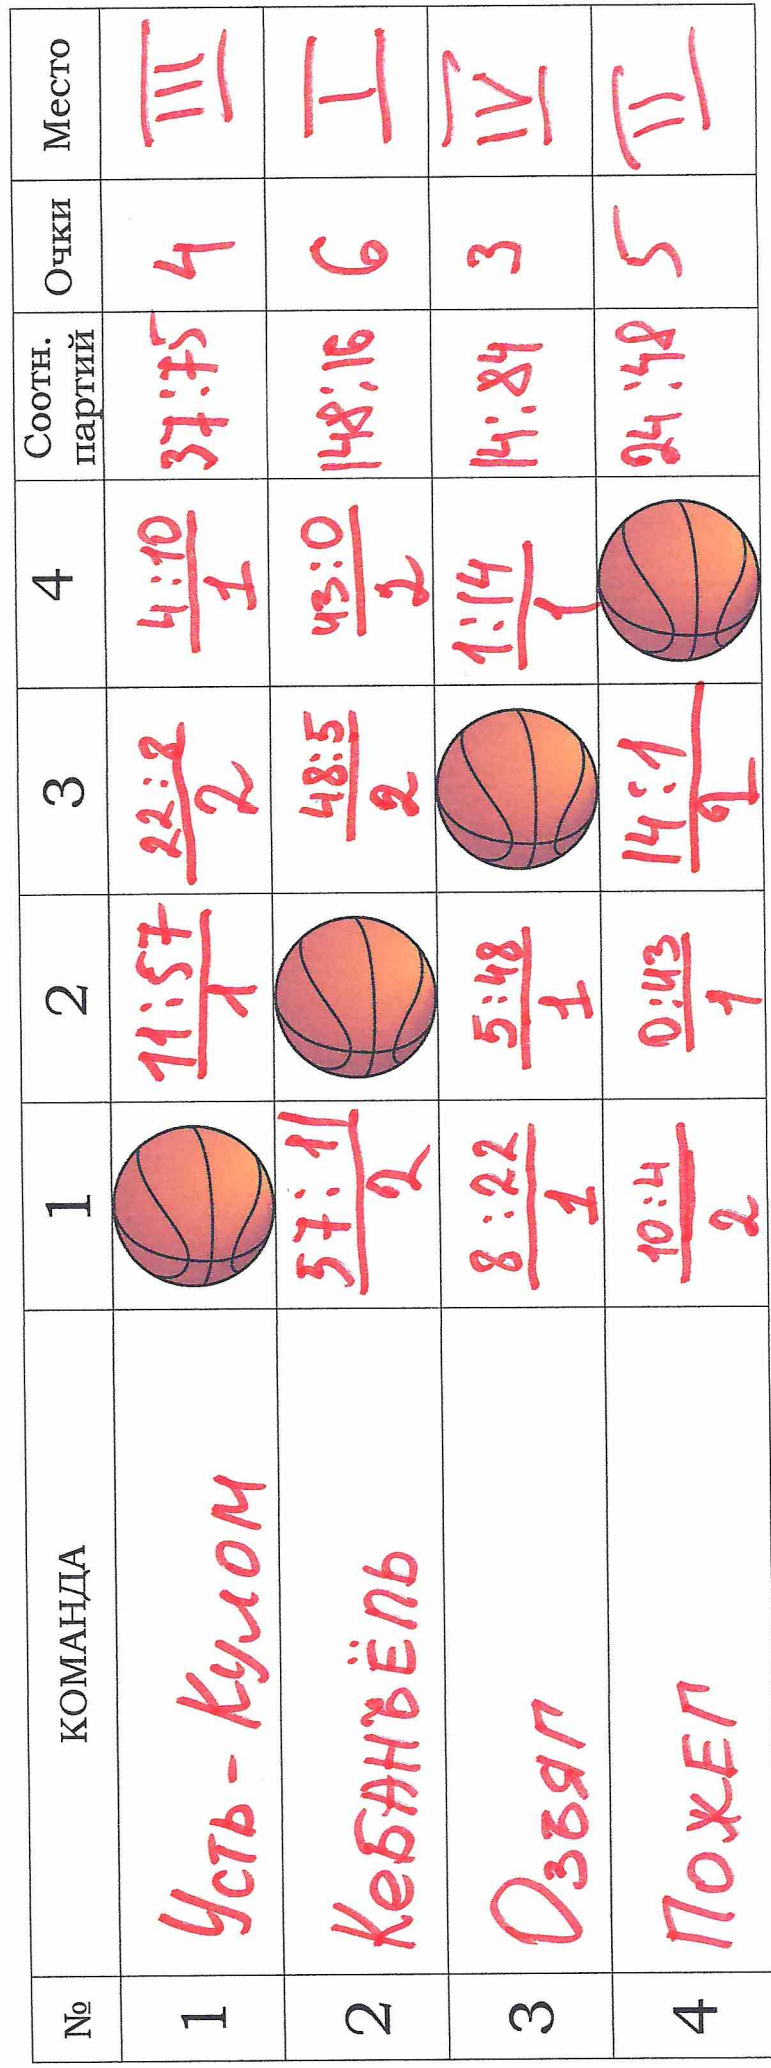 № КОМАНДА 1 2 3 4 Соотн. партий Очки Место
1 Усть-Кулом 11:57 1 22:8 2 4:10 1 37:75 4 III
2 КебАНЪЁЛЬ 57:11 2 48:5 2 43:0 2 148:16 6 I
3 Озъяг 8:22 1 5:48 1 1:14 1 14:84 3 IV
4 ПожЕг 10:4 2 0:43 1 14:1 2 24:48 5 II